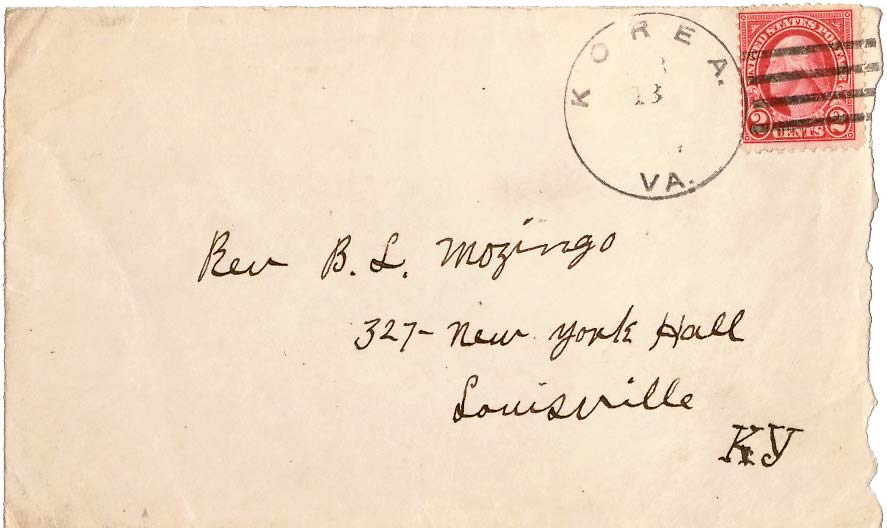 KOREA.
13
VA.
UNITED STATES POSTAGE
2 CENTS 2
Rev B. L. Mozingo
327- New York Hall
Louisville
KY